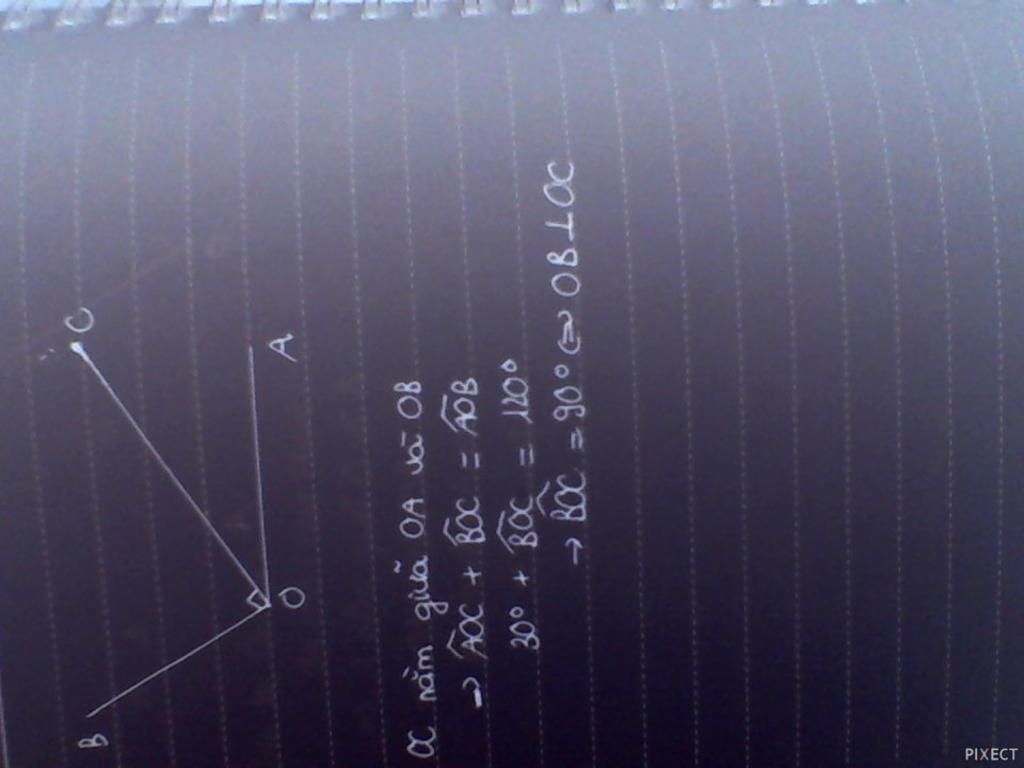 C
A
B
O
OC nằm giữa OA và OB
→ \widehat{AOC} + \widehat{BOC} = \widehat{AOB}
30° + \widehat{BOC} = 120°
→ \widehat{BOC} = 90° (=> OB⊥OC
PIXECT